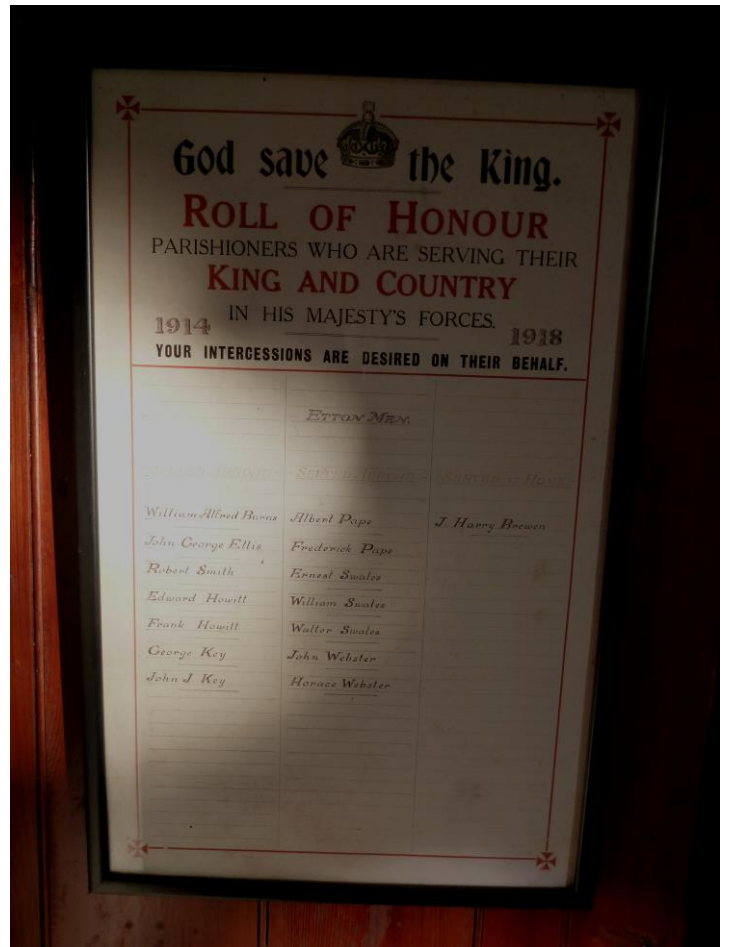 God save the King.
ROLL OF HONOUR
PARISHIONERS WHO ARE SERVING THEIR
KING AND COUNTRY
IN HIS MAJESTY'S FORCES.
1914 1918
YOUR INTERCESSIONS ARE DESIRED ON THEIR BEHALF.
ETTON MEN.
William Alfred Burns
John George Ellis
Robert Smith
Edward Howitt
Frank Howitt
George Key
John J. Key
Albert Pape
Frederick Pape
Ernest Swales
William Swales
Walter Swales
John Webster
Horace Webster
J. Harry Brown